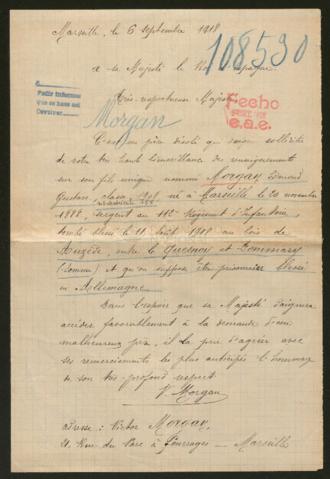 Marseille, le 6 septembre 1918
108590
a sa Majesté le Roi d'Espagne
Très respectueuse Majesté
Fecho
e.a.e.
Morgan
C'est un père désolé qui vient solliciter
de votre très haute bienveillance de renseignements
sur son fils unique nommé Morgan Edmond
Gustave, classe 1908 né à Marseille le 20 novembre
1888, sergent au 112e Régiment d'Infanterie
tombé blessé le 11 août 1918 au bois de
entre le Quesnoy et
(Somme) et qu'on suppose être prisonnier blessé
en Allemagne
Dans l'espoir que sa Majesté daignera
accéder favorablement à la demande d'un
malheureux père, il la prie d'agréer avec
ses remerciements les plus anticipés l'hommage
de son très profond respect.
V. Morgan
adresse : Victor Morgan,
Rue du Parc à Fourrages - Marseille